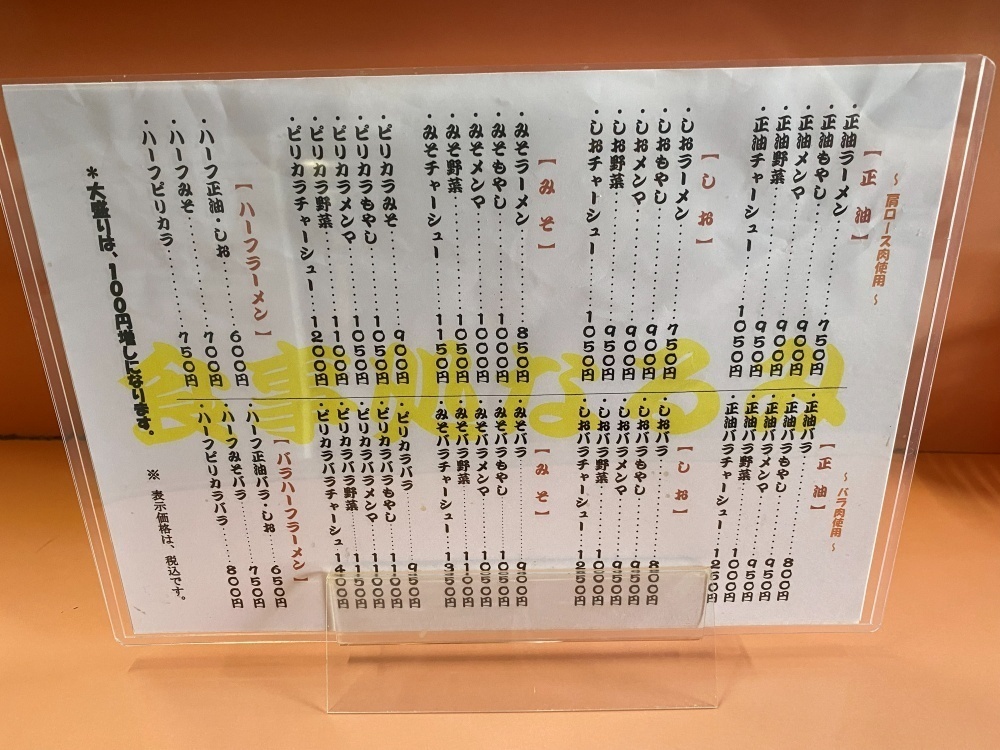 ～肩ロース肉使用～
【正 油】
・正油ラーメン 750円
・正油もやし 900円
・正油メンマ 900円
・正油野菜 950円
・正油チャーシュー 1050円
【しお】
・しおラーメン 750円
・しおもやし 900円
・しおメンマ 900円
・しお野菜 950円
・しおチャーシュー 1050円
【みそ】
・みそラーメン 850円
・みそもやし 1000円
・みそメンマ 1000円
・みそ野菜 1050円
・みそチャーシュー 1150円
・ピリカラみそ 900円
・ピリカラもやし 1050円
・ピリカラメンマ 1050円
・ピリカラ野菜 1100円
・ピリカラチャーシュー 1200円
【ハーフラーメン】
・ハーフ正油・しお 600円
・ハーフみそ 700円
・ハーフピリカラ 750円
＊大盛りは、100円増しになります。
～バラ肉使用～
【正 油】
・正油バラ 800円
・正油バラもやし 950円
・正油バラメンマ 950円
・正油バラ野菜 1000円
・正油バラチャーシュー 1250円
【しお】
・しおバラ 800円
・しおバラもやし 950円
・しおバラメンマ 950円
・しおバラ野菜 1000円
・しおバラチャーシュー 1250円
【みそ】
・みそバラ 900円
・みそバラもやし 1050円
・みそバラメンマ 1050円
・みそバラ野菜 1100円
・みそバラチャーシュー 1350円
・ピリカラバラ 950円
・ピリカラバラもやし 1100円
・ピリカラバラメンマ 1100円
・ピリカラバラ野菜 1150円
・ピリカラバラチャーシュー 1400円
【バラハーフラーメン】
・ハーフ正油バラ・しお 650円
・ハーフみそバラ 750円
・ハーフピリカラバラ 800円
※ 表示価格は、税込です。
食事処なるみ